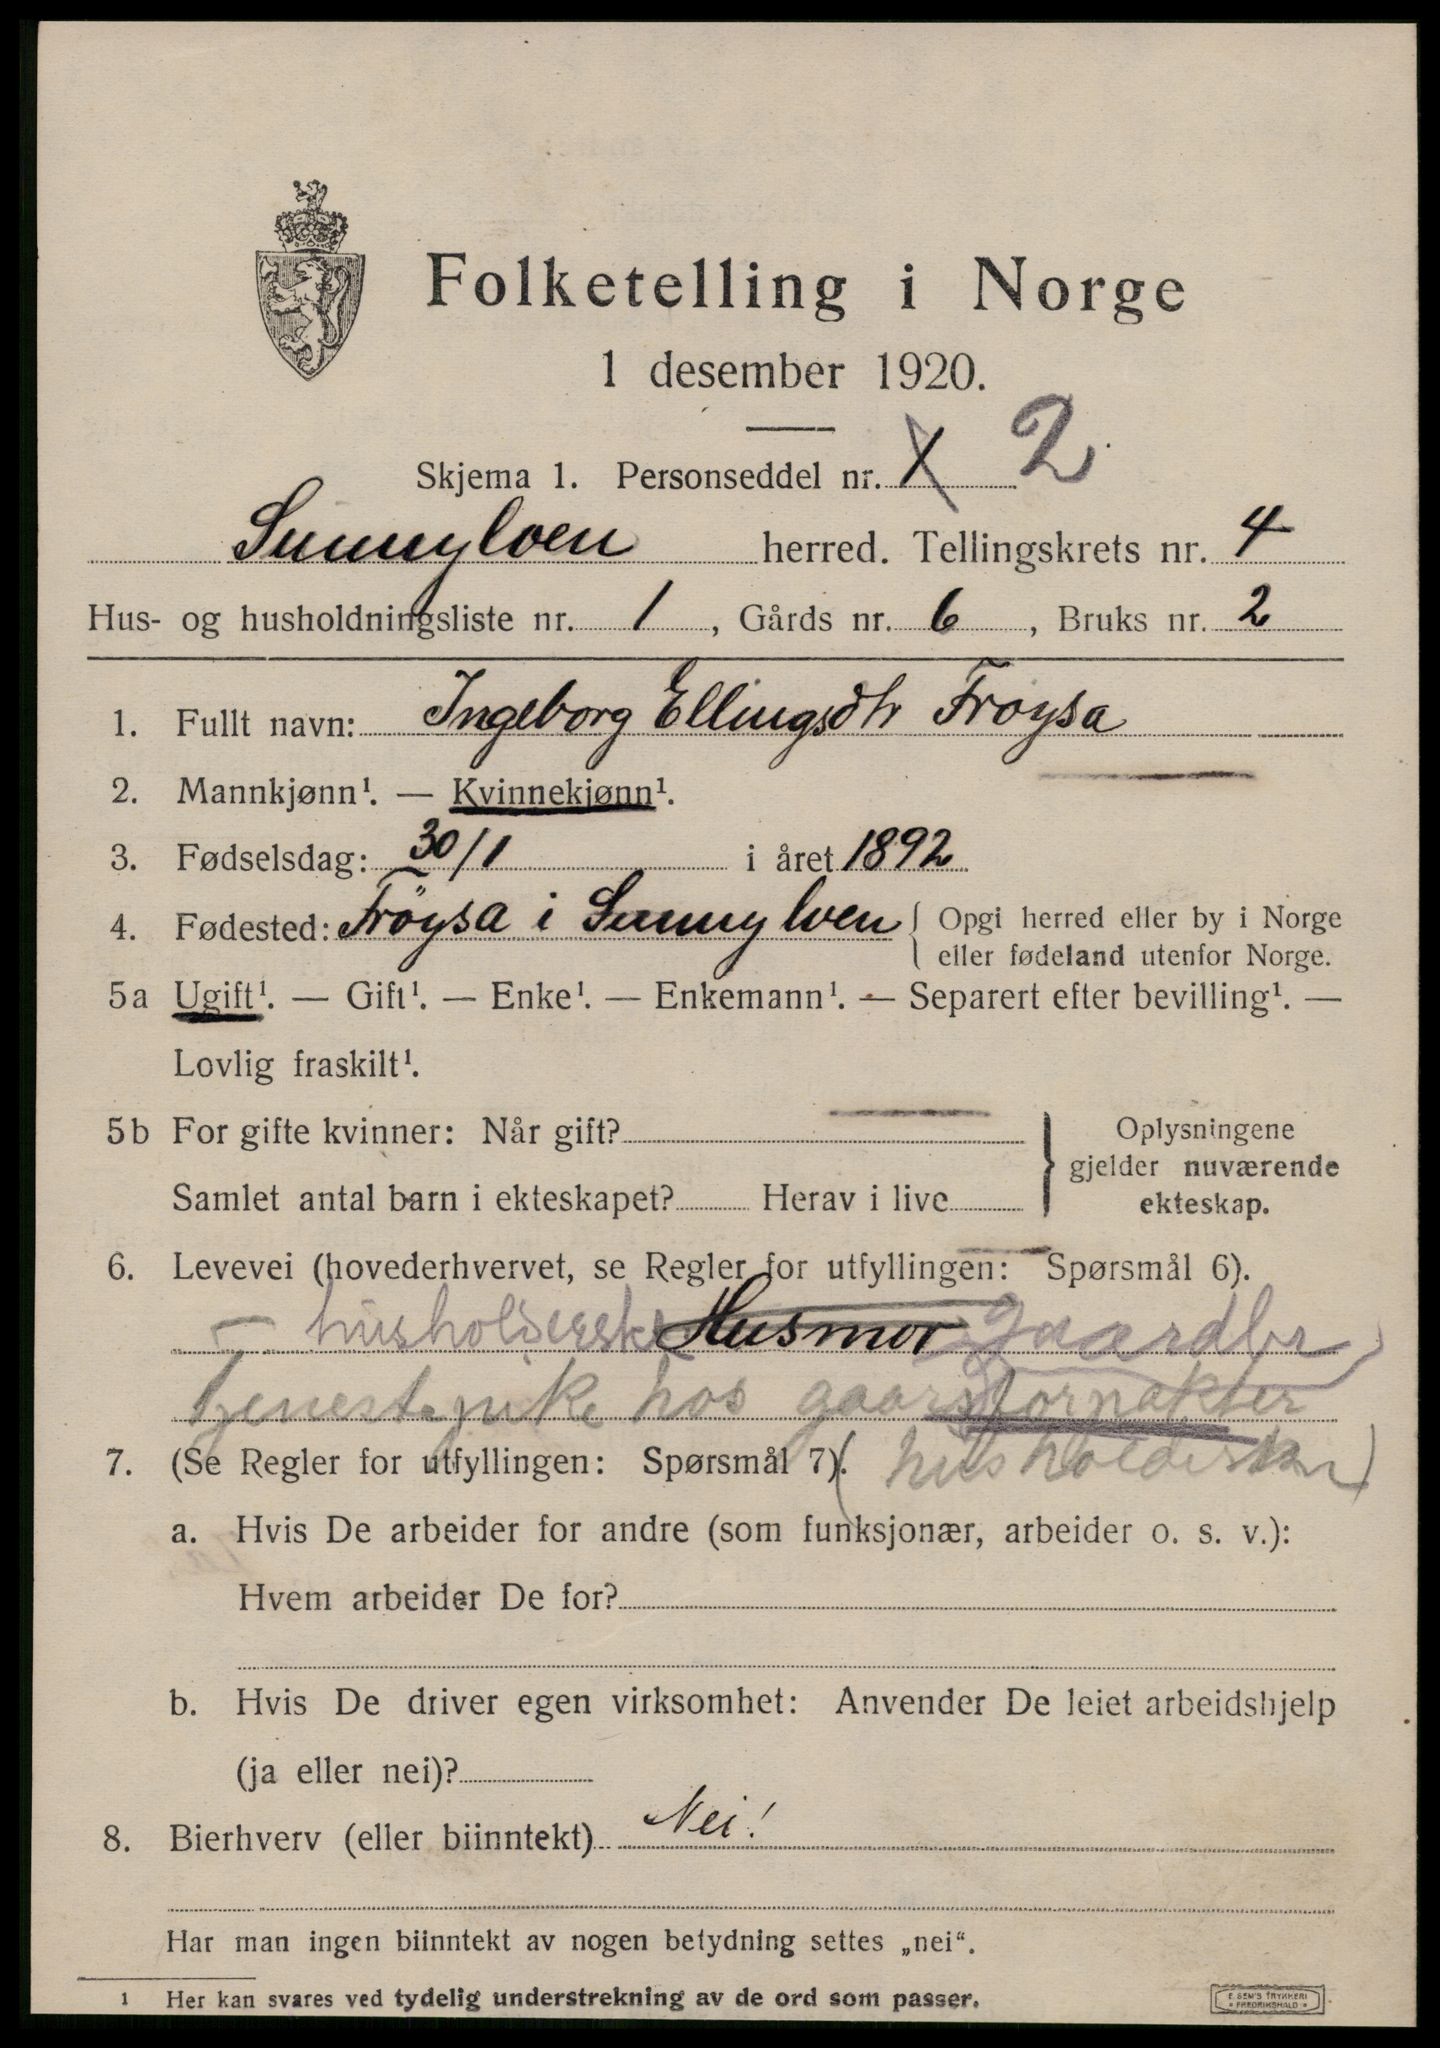 Folketelling i Norge
1 desember 1920.
Skjema 1. Personseddel nr. 1 2
Sunnylven herred. Tellingskrets nr. 4
Hus- og husholdningsliste nr. 1, Gårds nr. 6, Bruks nr. 2
1. Fullt navn: Ingeborg Ellingsdtr Frøysa
2. Mannkjønn¹. — Kvinnekjønn¹.
3. Fødselsdag: 30/1 i året 1892
4. Fødested: Frøysa i Sunnylven { Opgi herred eller by i Norge
eller fødeland utenfor Norge.
5a Ugift¹. — Gift¹. — Enke¹. — Enkemann¹. — Separert efter bevilling¹. —
Lovlig fraskilt¹.
5b For gifte kvinner: Når gift?
Samlet antal barn i ekteskapet? Herav i live
} Oplysningene
gjelder nuværende
ekteskap.
6. Levevei (hovederhvervet, se Regler for utfyllingen: Spørsmål 6).
— husholderske Husmor gaardbr
Tjenestepike hos gaardforpakter
7. (Se Regler for utfyllingen: Spørsmål 7). (husholderske)
a. Hvis De arbeider for andre (som funksjonær, arbeider o. s. v.):
Hvem arbeider De for?
b. Hvis De driver egen virksomhet: Anvender De leiet arbeidshjelp
(ja eller nei)?
8. Bierhverv (eller biinntekt) Nei!
Har man ingen biinntekt av nogen betydning settes „nei“.
1 Her kan svares ved tydelig understrekning av de ord som passer.
E. SEM'S TRYKKERI
* FREDRIKSHALD *